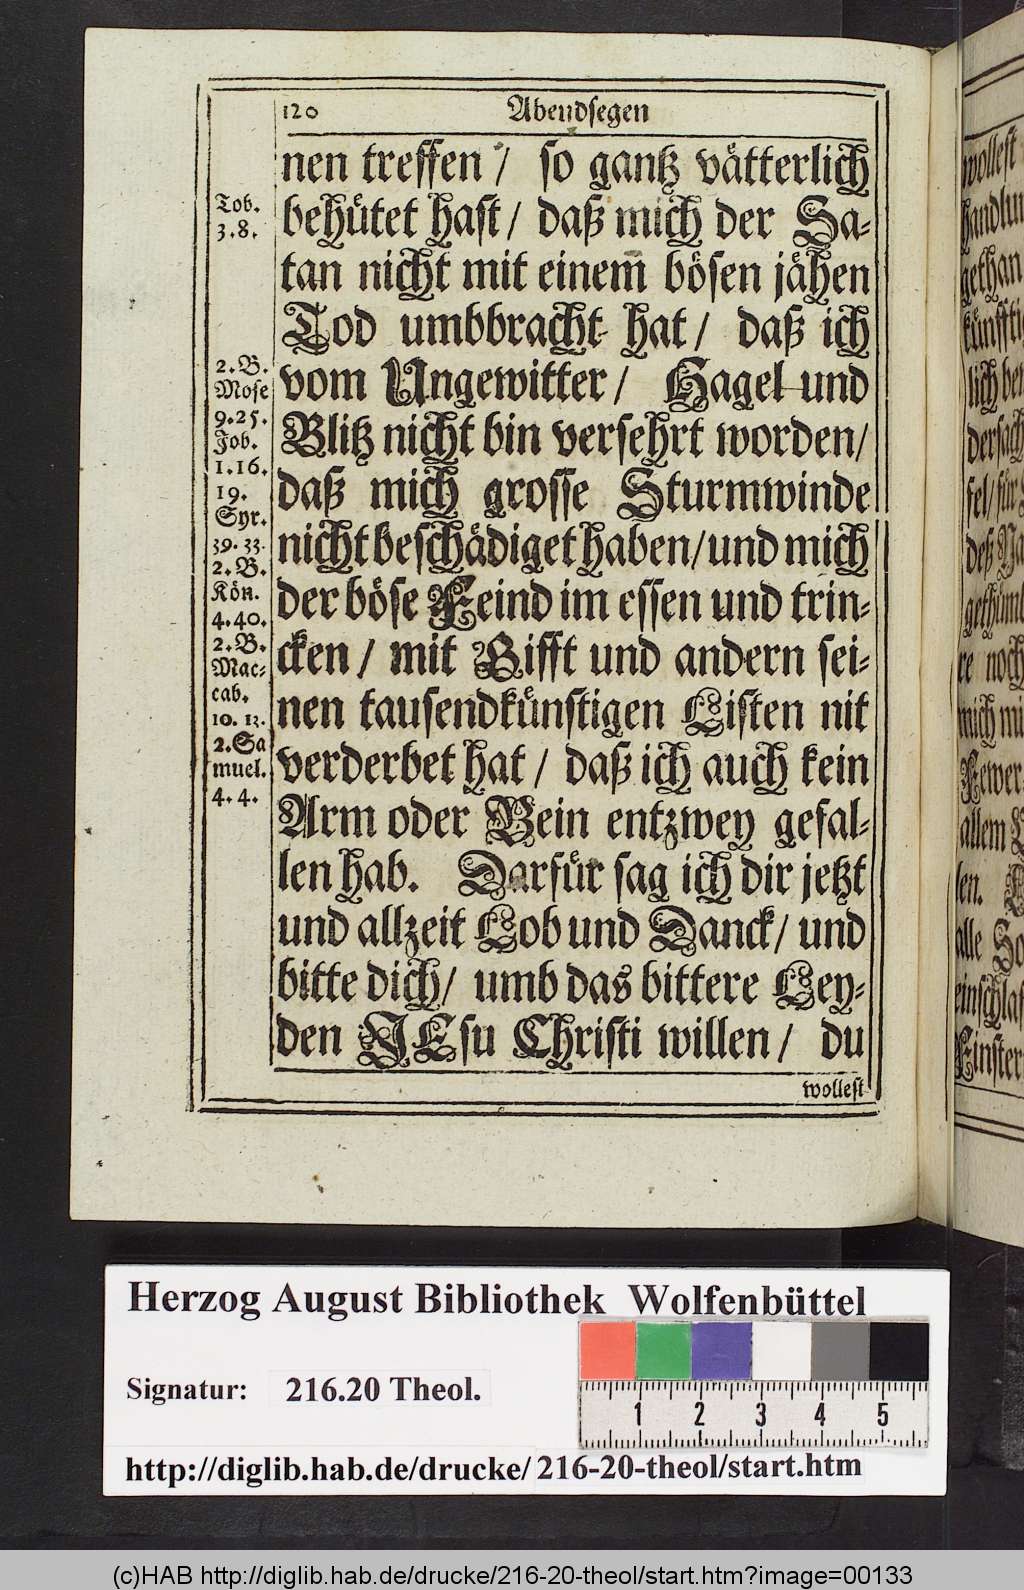 120 Abendsegen
nen treffen / so gantz vätterlich
behütet hast / daß mich der Sa-
tan nicht mit einem bösen jähen
Tod umbbracht hat / daß ich
vom Ungewitter / Hagel und
Blitz nicht bin versehrt worden /
daß mich grosse Sturmwinde
nicht beschädiget haben / und mich
der böse Feind im essen und trin-
cken / mit Gifft und andern sei-
nen tausendkünstigen Listen nit
verderbet hat / daß ich auch kein
Arm oder Bein entzwey gefal-
len hab. Darfür sag ich dir jetzt
und allzeit Lob und Danck / und
bitte dich / umb das bittere Ley-
den JEsu Christi willen / du
wollest
Tob.
3.8.
2.B.
Mose
9.25.
Job.
1.16.
19.
Syr.
39.33.
2.B.
Kön.
4.40.
2.B.
Mac-
cab.
10.13.
2.Sa
muel.
4.4.
wollest
handlun
gethan
künfftig
lich
dersach
fel / für
deß
re noch
mich mi
Fewer
allem
len.
alle
einschlaf
Finster
Herzog August Bibliothek Wolfenbüttel
Signatur: 216.20 Theol.
1 2 3 4 5
http://diglib.hab.de/drucke/216-20-theol/start.htm
(c)HAB http://diglib.hab.de/drucke/216-20-theol/start.htm?image=00133